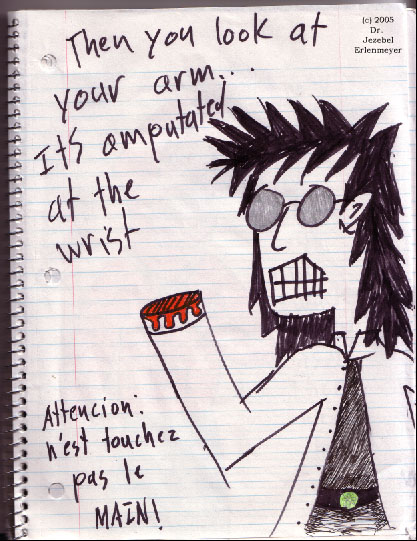 Then you look at
your arm...
It's amputated
at the
wrist
(c) 2005
Dr.
Jezebel
Erlenmeyer
Attencion:
n'est touchez
pas le
MAIN!